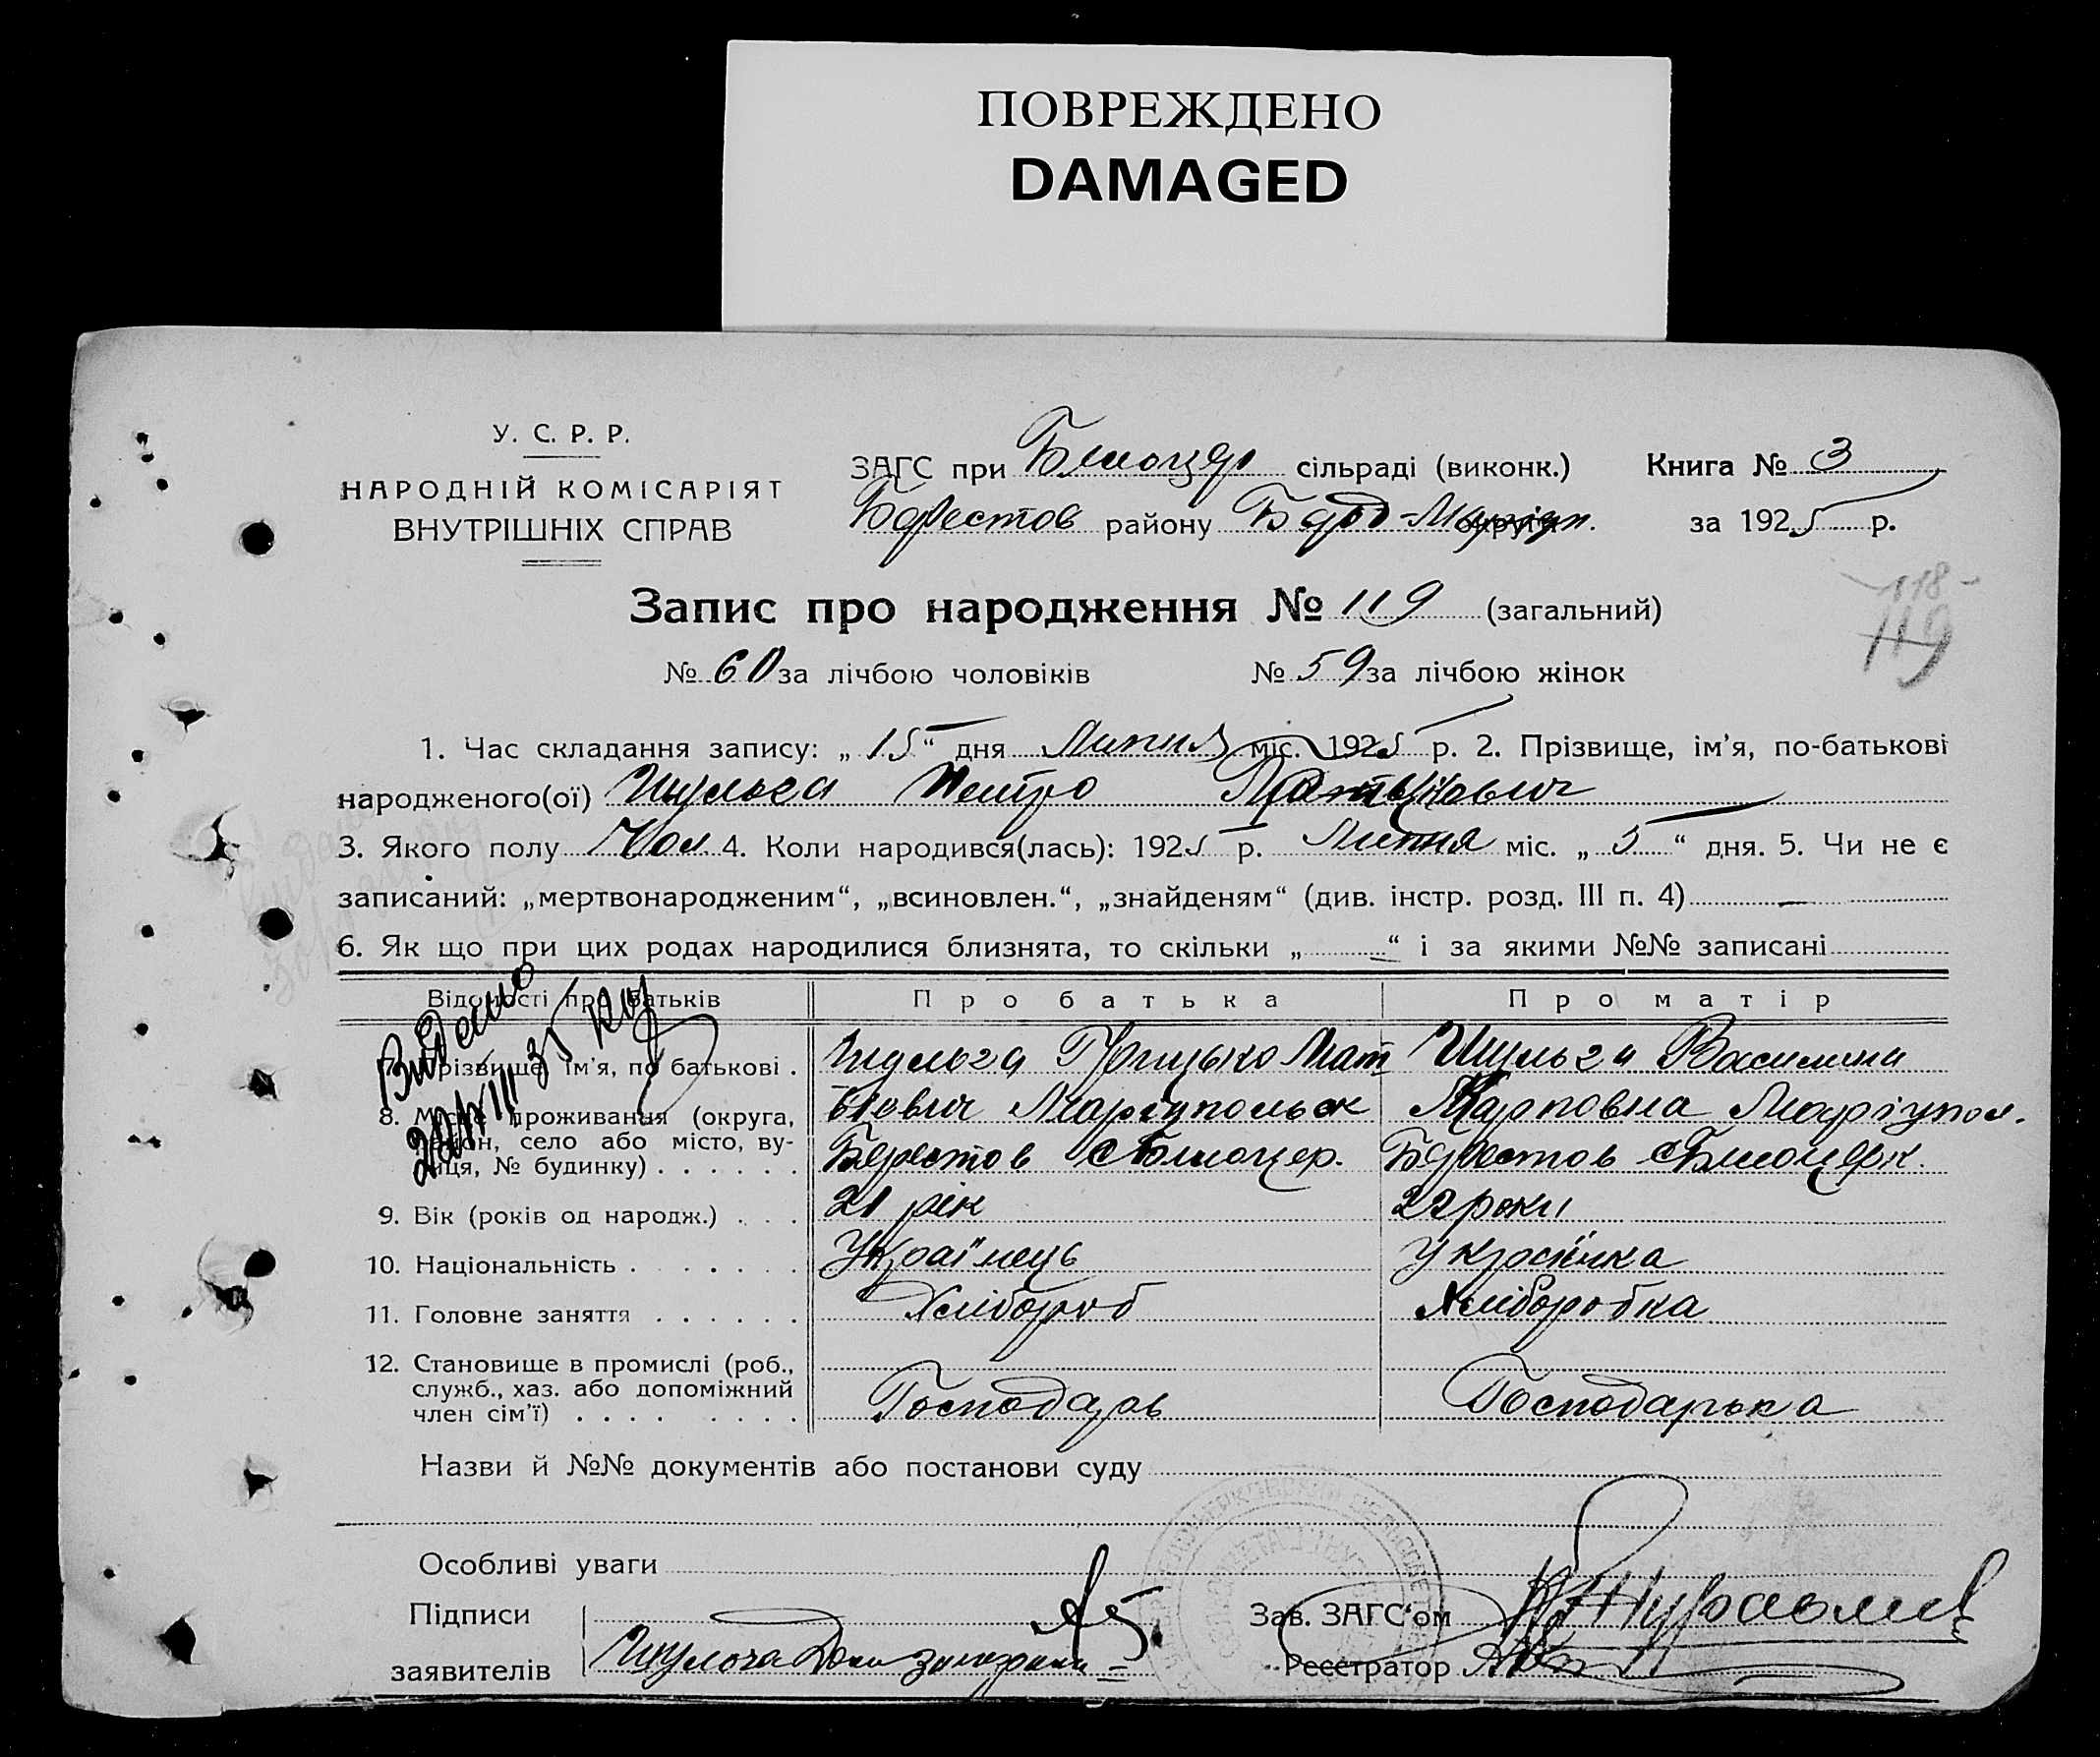 ПОВРЕЖДЕНО
DAMAGED
У. С. Р. Р.
НАРОДНІЙ КОМІСАРІЯТ
ВНУТРІШНІХ СПРАВ
ЗАГС при Білоцер сільраді (виконк.) Книга № 3
Берестов району Берд-Маріуп. округи за 1925 р.
-118-
119
Запис про народження № 119 (загальний)
№ 60 за лічбою чоловіків № 59 за лічбою жінок
1. Час складання запису: „ 15 “ дня Липня міс. 1925 р. 2. Прізвище, ім’я, по-батькові
народженого(ої) Шульга Петро
3. Якого полу Чол 4. Коли народився(лась): 1925 р. Липня міс. „ 5 “ дня. 5. Чи не є
записаний: „мертвонародженим“, „всиновлен.“, „знайденям“ (див. інстр. розд. III п. 4) —
6. Як що при цих родах народилися близнята, то скільки „ — “ і за якими №№ записані
Відомості про батьків Про батька Про матір
Видано
7. Прізвище, ім’я, по батькові . Шульга Грицько Мат Шульга Василина
8. Місце проживання (округа, вієвич Маріупольск Карповна Маріупол.
район, село або місто, ву-
лиця, № будинку) . . . . . . Берестов с Білоцер. Берестов с Білоцерк.
9. Вік (років од народж.) . . . 21 рік 22 роки
10. Національність . . . . . . . Українець Українка
11. Головне заняття . . . . . . Хлібороб Хліборобка
12. Становище в промислі (роб.,
служб., хаз. або допоміжний
член сім’ї) . . . . . . . . Господарь Господарька
Назви й №№ документів або постанови суду
Особливі уваги
Підписи Зав. ЗАГС‘ом
заявителів Реєстратор